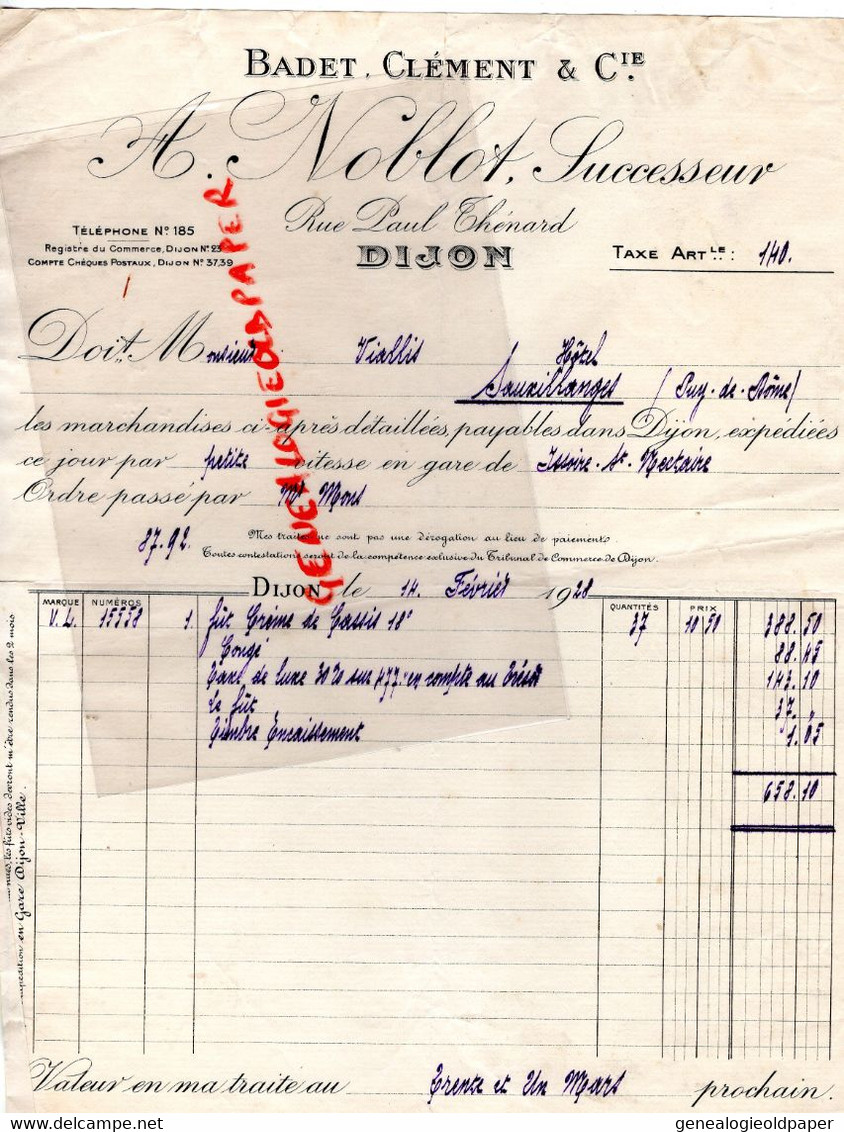 BADET, CLÉMENT & CIE
A. Noblot, Successeur
Rue Paul Thénard
DIJON
TÉLÉPHONE No 185
Registre du Commerce, DIJON No 23
COMPTE CHÈQUES POSTAUX, DIJON No 37,39
TAXE ARTLE : 140.
GENEALOGIEOLDPAPER
Doit Monsieur Viallis Hôtel
Sauxillanges (Puy-de-Dôme)
les marchandises ci-après détaillées, payables dans Dijon, expédiées
ce jour par petite vitesse en gare de Issoire-St-Nectaire
Ordre passé par Mr Mons
87.92
Mes traites ne sont pas une dérogation au lieu de paiement.
Toutes contestations seront de la compétence exclusive du Tribunal de Commerce de Dijon.
DIJON le 14 Février 1928
MARQUE NUMÉROS QUANTITÉS PRIX
V.L. 15558 1 fût Crème de Cassis 18° 37 10 50 388.50
Congé 88.45
Taxe de luxe 30% sur 477 en compte au Trésor 143.10
Le fût 37.„
Timbre Encaissement 1.05
658.10
les fûts vides devront m'être rendus dans les 2 mois
en Gare Dijon-Ville.
Valeur en ma traite au Trente et Un Mars prochain.
genealogieoldpaper